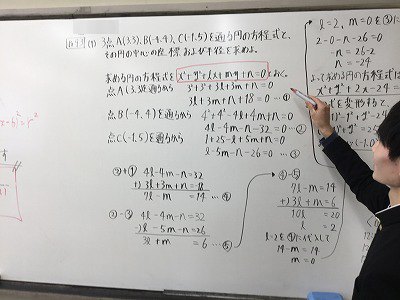 (1) 3点A(3,3), B(-4,4), C(-1,5)を通る円の方程式と、
その円の中心の座標および半径を求めよ。
求める円の方程式を x²+y²+lx+my+n=0 とおく。
点A(3,3)を通るから 3²+3²+3l+3m+n=0
3l+3m+n+18=0 …①
点B(-4,4)を通るから 4²+4²-4l+4m+n=0
4l-4m-n-32=0 …②
点C(-1,5)を通るから 1+25-l+5m+n=0
l-5m-n-26=0 …③
②+① 4l-4m-n=32
+)3l+3m+n=-18
7l-m=14 …④
②-③ 4l-4m-n=32
-)l-5m-n=26
3l+m=6 …⑤
④-⑤
7l-m=14
+)3l+m=6
10l=20
l=2
l=2を④に代入して
14-m=14
m=0
l=2, m=0を③に
2-0-n-26=0
-n=26-2
n=-24
よって求める円の方程式は
x²+y²+2x-24=
式を変形すると、